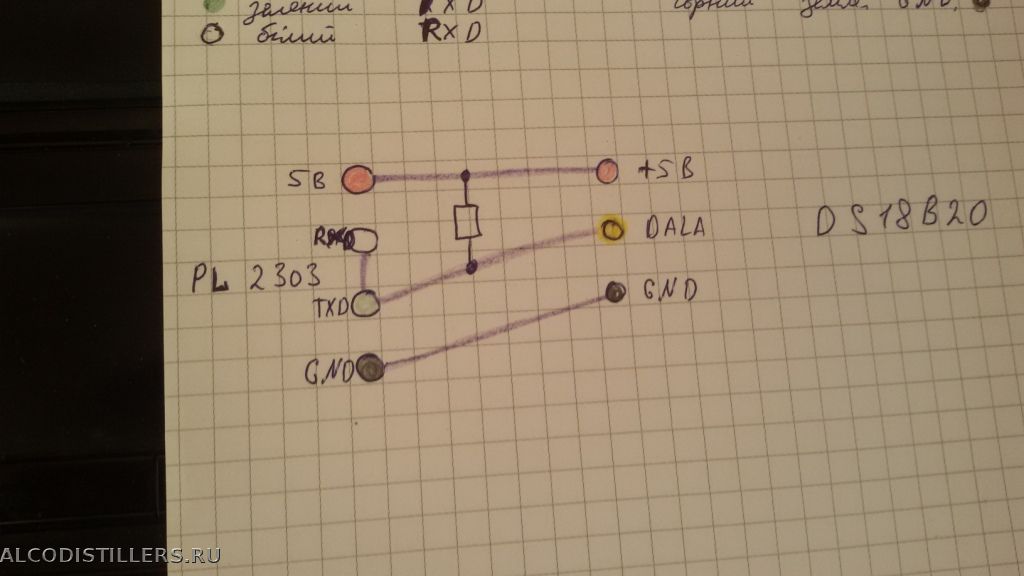 зелений TXD
білий RXD
5В +5В
RXD DALA DS18B20
PL 2303
TXD GND
GND
ALCODISTILLERS.RU